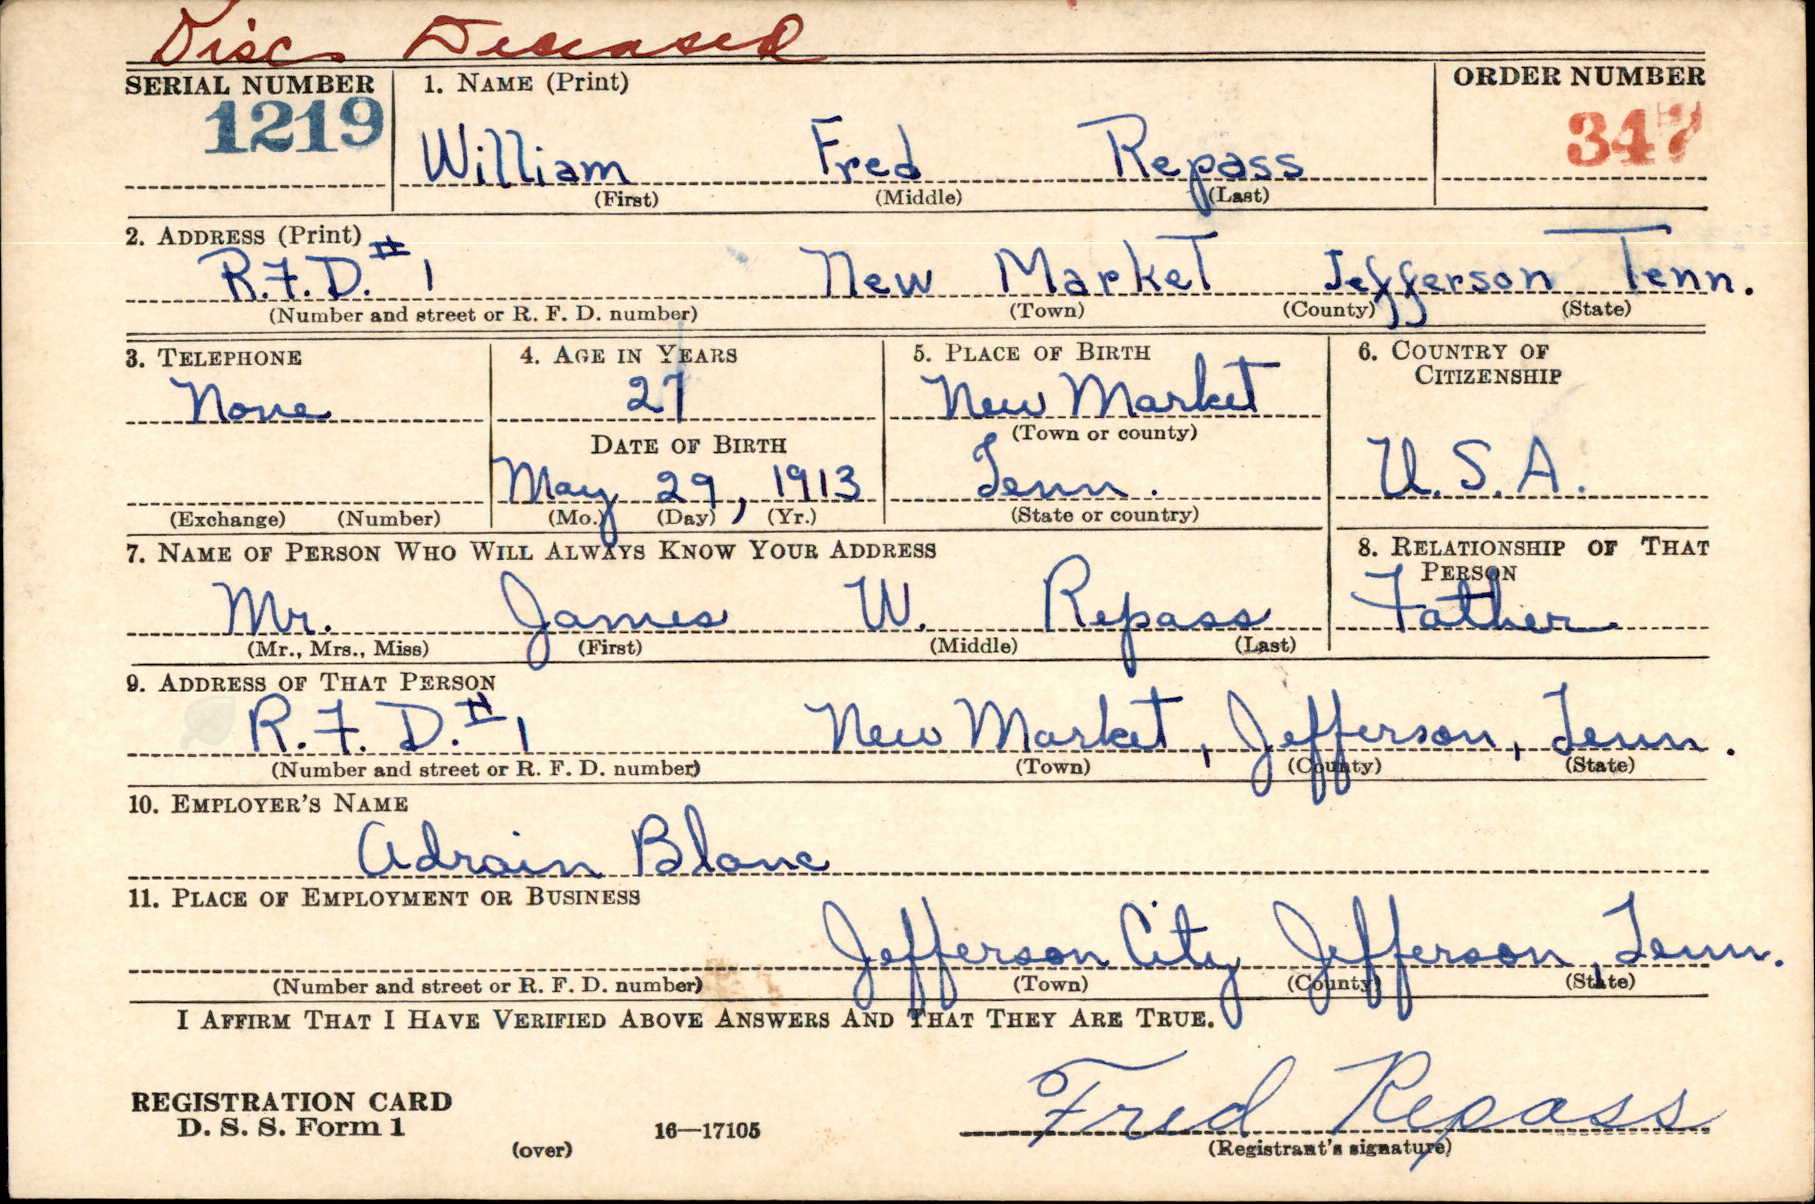 Disc. Deceased
SERIAL NUMBER 1. NAME (Print) ORDER NUMBER
1219 William Fred Repass 347
(First) (Middle) (Last)
2. ADDRESS (Print)
R.F.D. # 1 New Market Jefferson Tenn.
(Number and street or R. F. D. number) (Town) (County) (State)
3. TELEPHONE 4. AGE IN YEARS 5. PLACE OF BIRTH 6. COUNTRY OF CITIZENSHIP
None 27 New Market
(Town or county)
DATE OF BIRTH
May 29, 1913 Tenn. U.S.A.
(Exchange) (Number) (Mo.) (Day) (Yr.) (State or country)
7. NAME OF PERSON WHO WILL ALWAYS KNOW YOUR ADDRESS 8. RELATIONSHIP OF THAT PERSON
Mr. James W. Repass Father
(Mr., Mrs., Miss) (First) (Middle) (Last)
9. ADDRESS OF THAT PERSON
R.F.D. # 1 New Market, Jefferson, Tenn.
(Number and street or R. F. D. number) (Town) (County) (State)
10. EMPLOYER'S NAME
Adrain Blanc
11. PLACE OF EMPLOYMENT OR BUSINESS
Jefferson City Jefferson, Tenn.
(Number and street or R. F. D. number) (Town) (County) (State)
I AFFIRM THAT I HAVE VERIFIED ABOVE ANSWERS AND THAT THEY ARE TRUE.
Fred Repass
REGISTRATION CARD
D. S. S. Form 1
(over) 16—17105 (Registrant's signature)